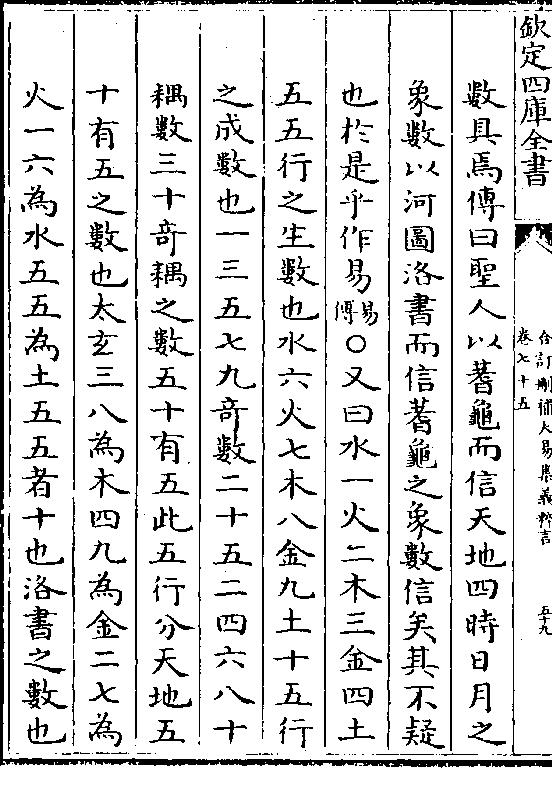 欽定四庫全書
合訂刪補大易集義粹言
卷七十五
五十九
數具焉傳曰聖人以蓍龜而信天地四時日月之
象數以河圖洛書而信蓍龜之象數信矣其不疑
也於是乎作易易傳○又曰水一火二木三金四土
五五行之生數也水六火七木八金九土十五行
之成數也一三五七九竒數二十五二四六八十
耦數三十竒耦之數五十有五此五行分天地五
十有五之數也太玄三八為木四九為金二七為
火一六為水五五為土五五者十也洛書之數也